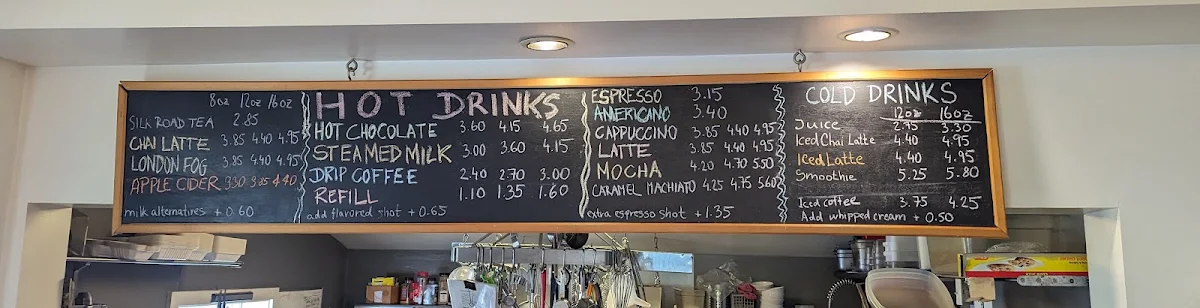 8oz 12oz 16oz
SILK ROAD TEA 2.85
CHAI LATTE 3.85 4.40 4.95
LONDON FOG 3.85 4.40 4.95
APPLE CIDER 3.30 3.85 4.40
milk alternatives + 0.60
HOT DRINKS
HOT CHOCOLATE 3.60 4.15 4.65
STEAMED MILK 3.00 3.60 4.15
DRIP COFFEE 2.40 2.70 3.00
REFILL 1.10 1.35 1.60
add flavored shot + 0.65
ESPRESSO 3.15
AMERICANO 3.40
CAPPUCCINO 3.85 4.40 4.95
LATTE 3.85 4.40 4.95
MOCHA 4.20 4.70 5.50
CARAMEL MACHIATO 4.25 4.75 5.60
extra espresso shot + 1.35
COLD DRINKS
12oz 16oz
Juice 2.75 3.30
Iced Chai Latte 4.40 4.95
Iced Latte 4.40 4.95
Smoothie 5.25 5.80
Iced coffee 3.75 4.25
Add whipped cream + 0.50